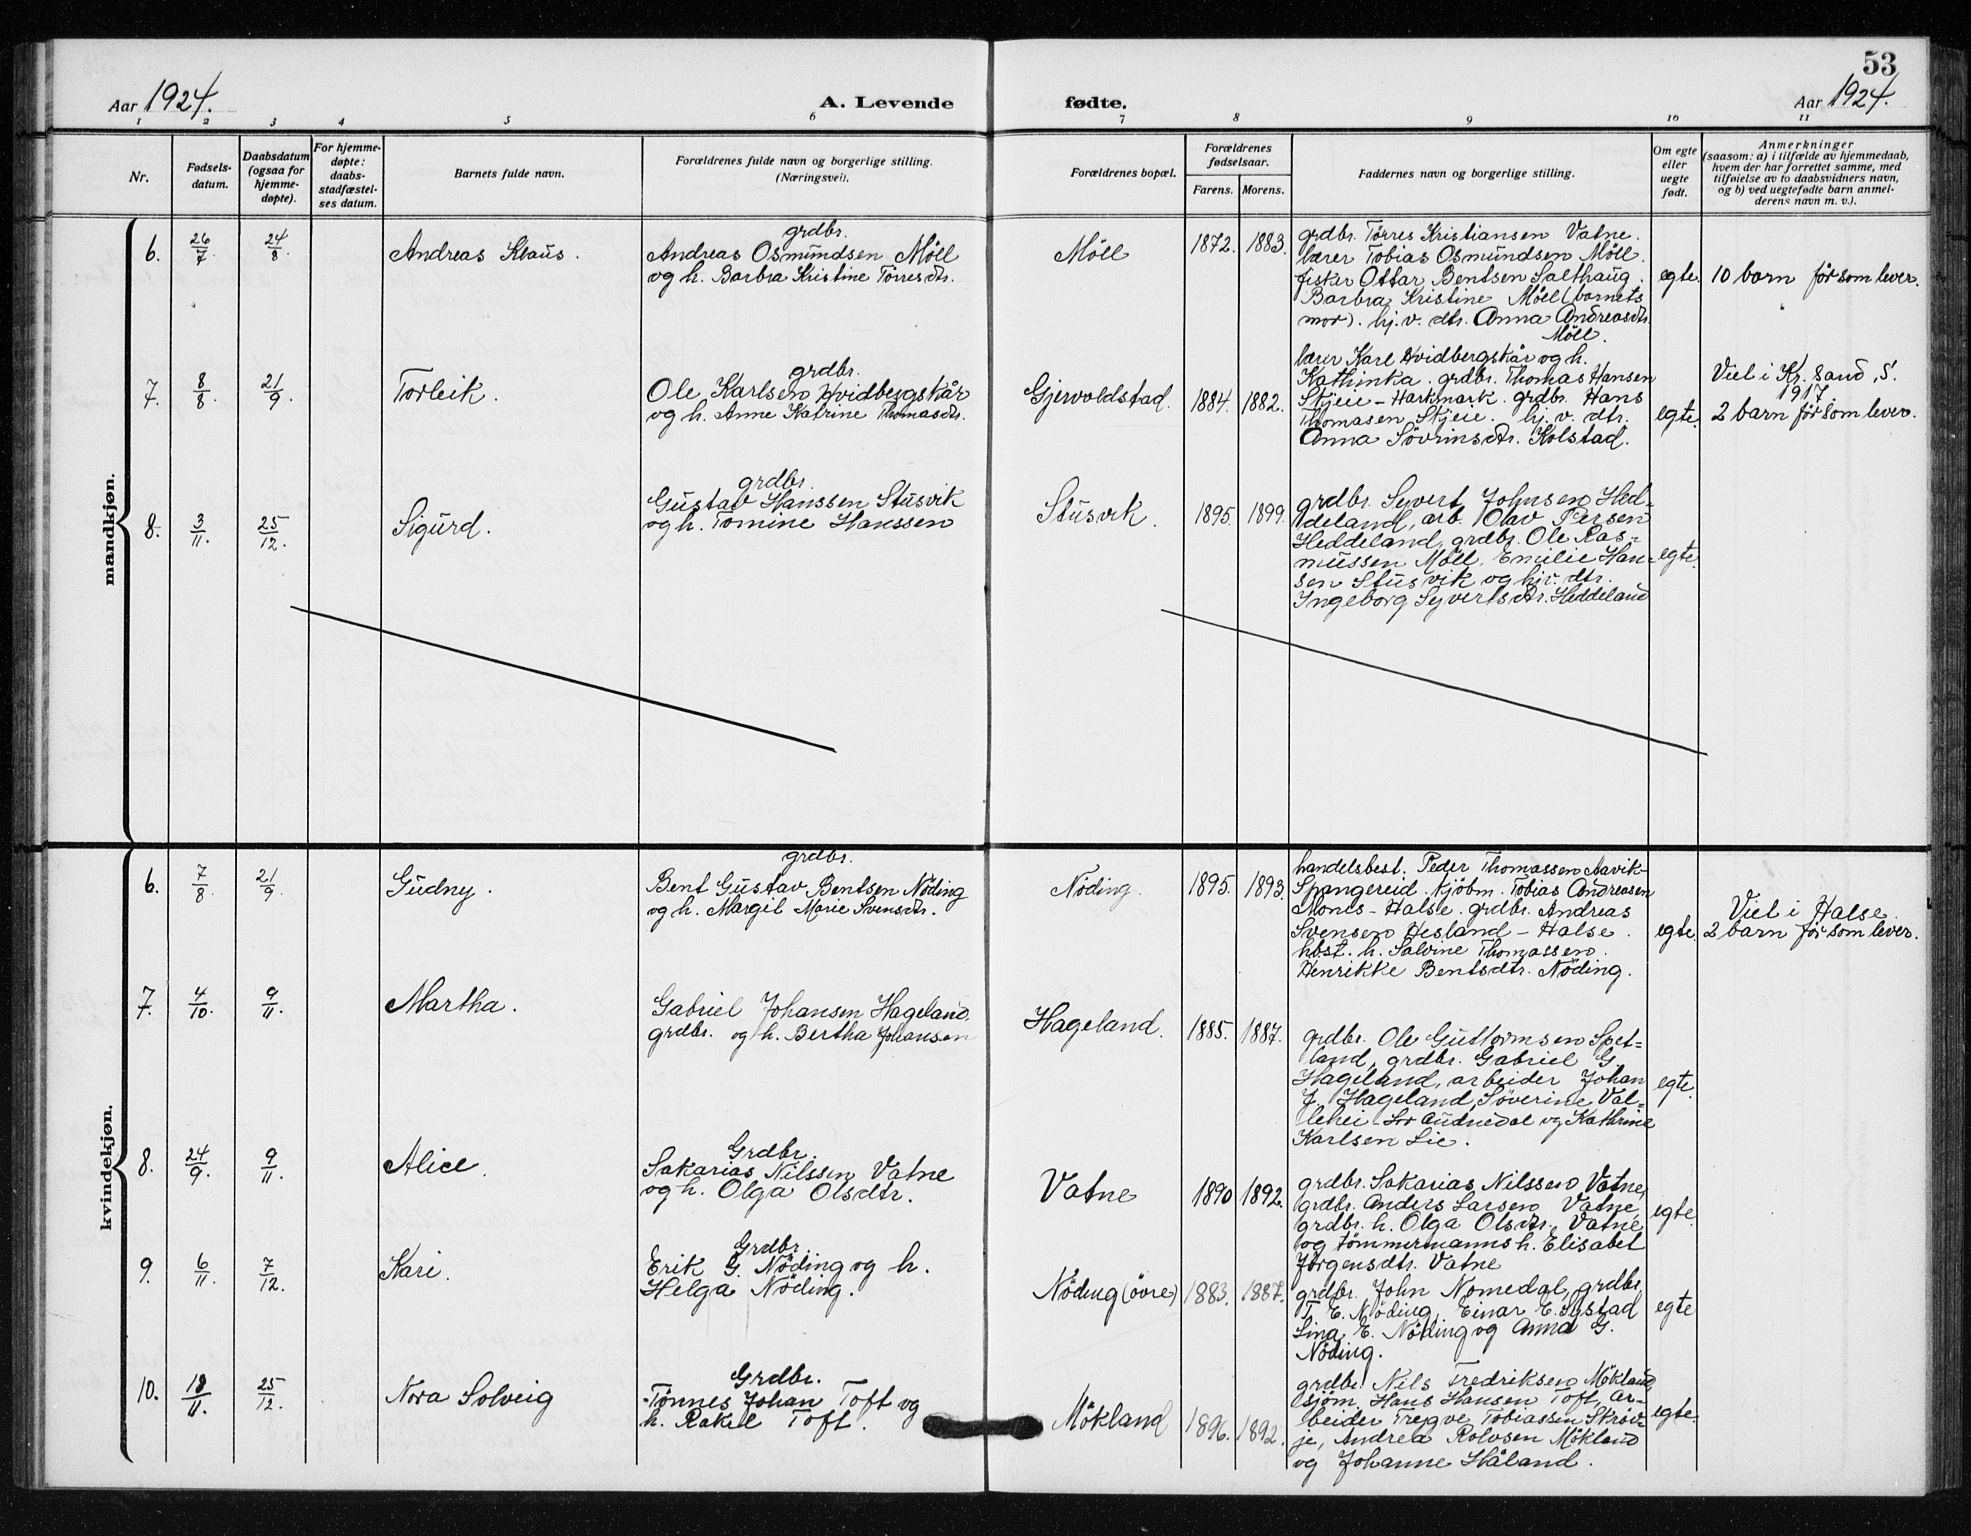 53
Aar 1924.
A. Levende
fødte.
Aar 1924.
1 2 3 4 5 6 7 8 9 10 11
Nr.
Fødsels-
datum.
Daabsdatum
(ogsaa for
hjemme-
døpte).
For hjemme-
døpte:
daabs-
stadfæstel-
ses datum.
Barnets fulde navn.
Forældrenes fulde navn og borgerlige stilling.
(Næringsvei).
Forældrenes bopæl.
Forældrenes
fødselsaar.
Farens. Morens.
Faddernes navn og borgerlige stilling.
Om egte
eller
uegte
født.
Anmerkninger
(saasom: a) i tilfælde av hjemmedaab,
hvem der har forrettet samme, med
tilføielse av to daabsvidners navn,
og b) ved uegtefødte barn anmel-
derens navn m. v.).
mandkjøn.
6. 26/7 24/8 Andreas Klaus.
grdbr.
Andreas Osmundsen Möll
og h. Barbra Kristine Torresdtr.
Möll 1872. 1883.
grdbr. Tørres Kristiansen Vatne.
lærer Tobias Osmundsen Möll.
fisker Ottar Bentsen Salthaug.
Barbra Kristine Möll (barnets
mor). hj. v. dtr. Anna Andreasdtr.
Möll.
egte. 10 barn før som lever.
7. 8/8 21/9 Torleik.
grdbr.
Ole Karlsen Hvidbergskår
og h. Anne Katrine Thomasdtr.
Gjervoldstad. 1884. 1882.
lærer Karl Hvidbergskår og h.
Kathinka. grdbr. Thomas Hansen
Skjeie - Harkmark. grdbr. Hans
Thomasen Skjeie. hj. v. dtr.
Anna Sövrinsdtr. Kolstad.
egte.
Viel i Kr. sand, S.
1917
2 barn før som lever.
8. 3/11. 25/12. Sigurd.
grdbr.
Gustav Hanssen Stusvik
og h. Tomine Hanssen
Stusvik. 1895. 1899.
grdbr. Syvert Johnsen Hed-
deland, arb. Olav Persen
Heddeland, grdbr. Ole Ras-
mussen Möll, Emilie Han-
sen Stusvik og hj. v. dtr.
Ingeborg Syvertsdtr. Heddeland
egte.
kvindekjøn.
6. 7/8 21/9. Gudny.
grdbr.
Bent Gustav Bentsen Nöding
og h. Margit Marie Svensdtr.
Nöding. 1895. 1893.
handelsbest. Peder Thomassen Aavik-
Spangereid. kjöbm. Tobias Andreasen
Mones - Halse. grdbr. Andreas
Svensen Hesland - Halse.
hbst. h. Salvine Thomassen.
Henrikke Bentsdtr. Nöding.
egte.
Viel i Halse.
2 barn før som lever.
7. 4/10. 9/11. Martha.
Gabriel Johansen Hageland.
grdbr. og h. Bertha Johansen
Hageland. 1885. 1887.
grdbr. Ole Guttormsen Spet-
land, grdbr. Gabriel G.
Hageland, arbeider Johan
J. Hageland, Söverine Val-
lehei Sør Audnedal og Kathrine
Karlsen Lie.
egte.
8. 24/9. 9/11. Alice.
Grdbr.
Sakarias Nilssen Vatne
og h. Olga Olsdtr.
Vatne 1890 1892.
grdbr. Sakarias Nilssen Vatne,
grdbr. Anders Larsen Vatne
grdbr. h. Olga Olsdtr. Vatne
og tømmermanns h. Elisabet
Jörgensdtr. Vatne
egte.
9. 6/11. 7/12. Kari.
Grdbr.
Erik G. Nöding og h.
Helga Nöding.
Nöding (övre) 1883. 1887.
grdbr. John Nomedal, grdbr.
T. E. Nöding, Einar E. Systad
Lina E. Nöding og Anna G.
Nöding.
egte
10. 18/11. 25/12. Nora Solveig
Grdbr.
Tønnes Johan Toft og
h. Rakel Toft.
Mökland 1896. 1892.
grdbr. Nils Fredriksen Mökland,
sjöm. Hans Hansen Toft, ar-
beider Trygve Tobiassen Skrøv-
je, Andrea Rolvsen Mökland
og Johanne Håland.
egte.